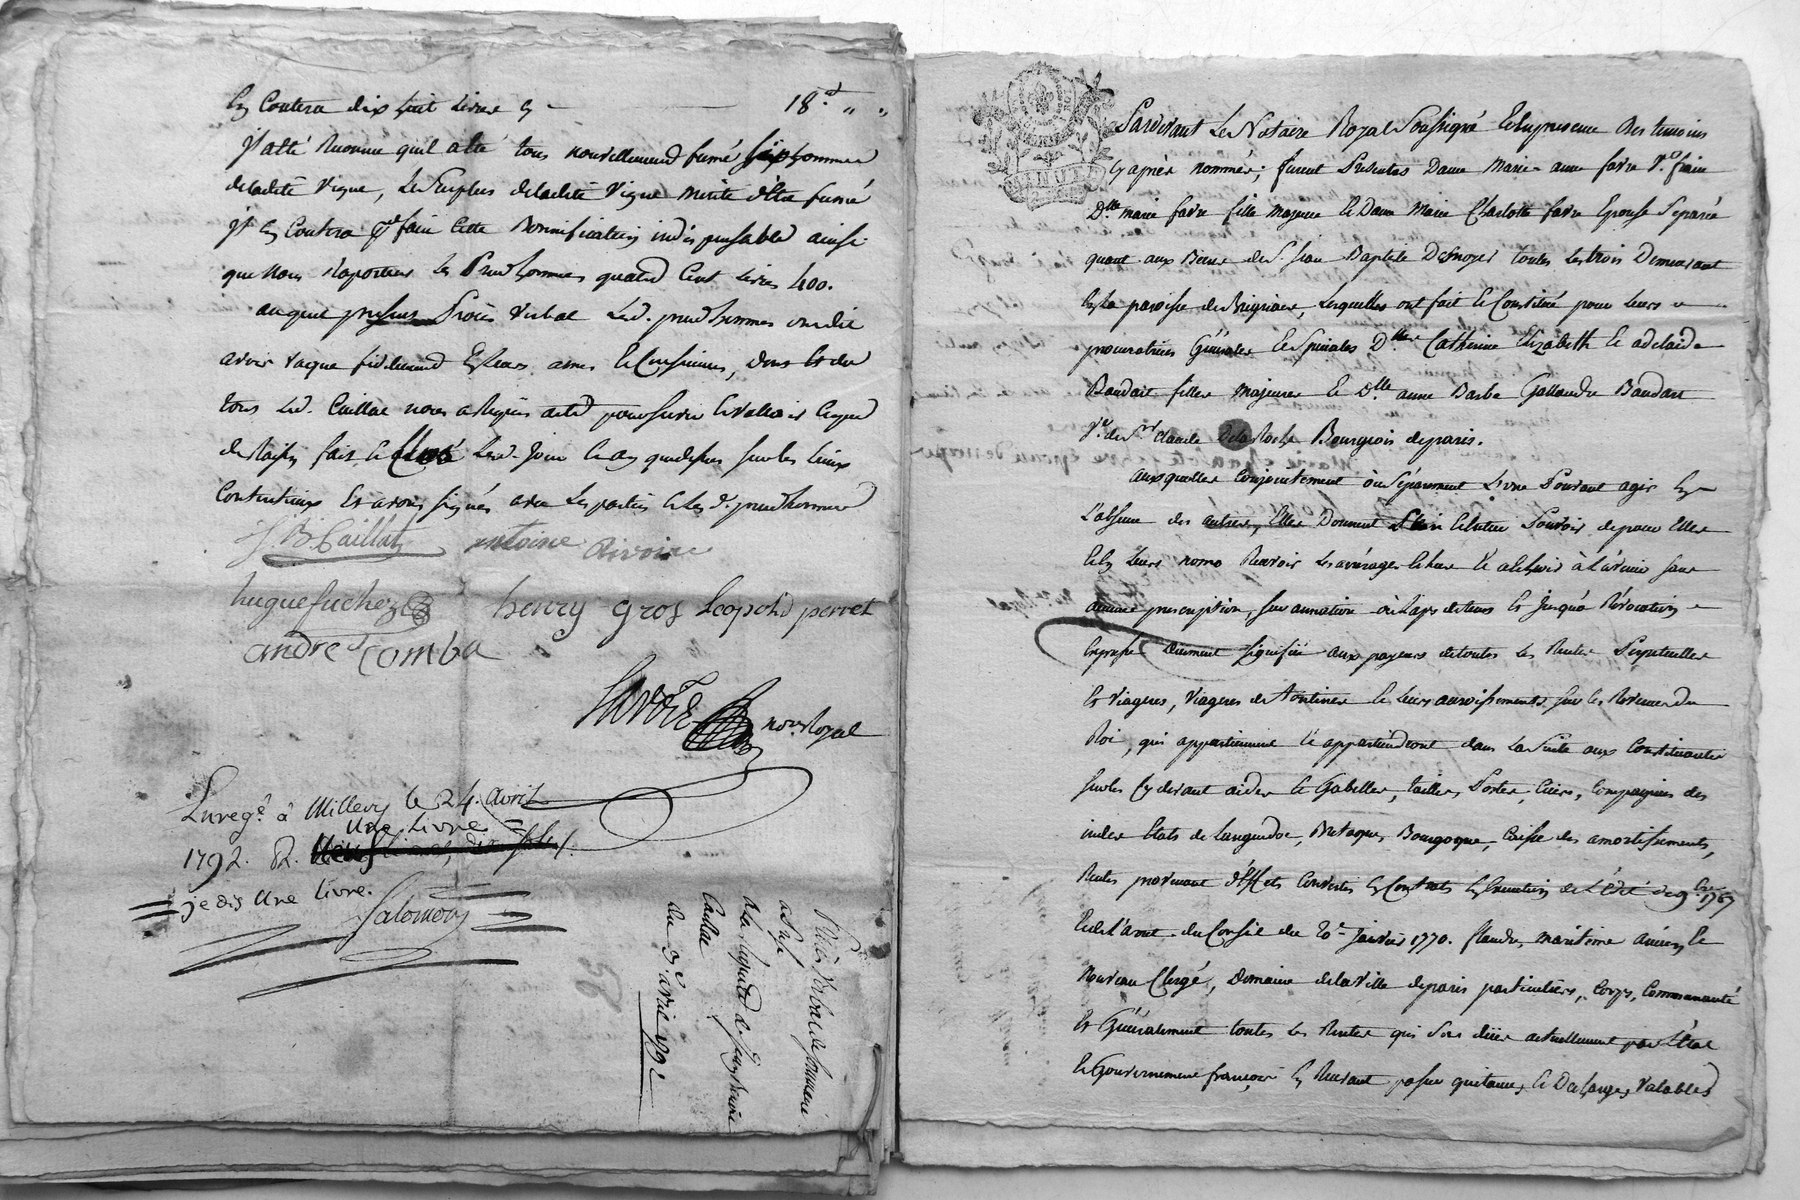 En Coutera dix huit Livres cy 18.ᵗ " "
Il a été Reconnu qu'il a été tous nouvellement fumé six hommées
de ladite vigne, Le Surplus de ladite Vigne mérite d'être fumé
Il En Coutera pr. faire Cette Bonnification indispensable ainsi
que nous Raportent les Prud'hommes quatre Cent Livres 400.
auquel présent Procès Verbal Lesd. prud'hommes ont dit
avoir vaqué fidelement En Leurs ames et Consciences, Dont Et du
tout Led. Caillat nous a Requis acte pour servir Et valloir Ce que
de Raison fait et Clos Lesd. Jour Et an que dessus sur les Lieux
Contentieux Et avons signés avec Les parties et Les d. prud'hommes
J B. Caillat antoine Rivoire
hugue fuchez henry gros Leopold perret
andre Comba
Favre notre. Royal
Enregé. à Millery le 24. avril
une Livre
1792. R.
je dis une livre.
Salomon
Procès Verbal de Sommaire
du 3e avril 1792
Caillat
Pardevant Le Notaire Royal Soussigné Et En presence des temoins
Cy après nommés; furent Presentes Dame Marie-anne favre Ve. 
Dlle marie favre fille majeure Et Dame Marie Charlotte favre Epouse Separée
quant aux Biens de Sr. Jean Baptiste Desnoyer toutes Les trois Demeurant
En La paroisse de Brignais, Lesquelles ont fait et Constitué pour Leurs
procuratrices Générales Et Speciales Dlles Catherine Elizabeth Et adelaide
Baudart filles majeures Et Dlle anne Barbe Gallande Baudart
Ve. de Sr. Claude Delaroche Bourgeois de paris.
auxquelles Conjointement ou Séparément L'une Pouvant agir En
L'absence des autres, Elles Donnent Plein Et Entier Pouvoir de pour Elles
Et En Leurs noms Recevoir Les arrérages Echus Et à Echoir à L'avenir sans
aucune prescription, surannation ou Laps de tems Et Jusqu'à Révocation
Expresse Duement signifiée aux payeurs de toutes Les Rentes Perpetuelles
Et Viageres, Viageres de Tontines Et Leurs accroissements sur les Revenus du
Roi, qui appartiennent Et appartiendront dans La Suite aux Constituantes
sur les Cy devant aides Et Gabelles, Tailles, Postes, Cuirs, Compagnies des
indes Etats de Languedoc, Bretagne, Bourgogne, Caisse des amortissements,
Rentes provenant d'Effets Convertis En Contrats En Execution de L'Edit de 9bre 1767
Et de L'arret du Conseil du 20e Janvier 1770. flandre maritime ancien Et
nouveau Clergé, Domaine de la Ville de paris particuliers, Corps, Communauté
Et Généralement toutes Les Rentes qui Sont dües actuellement par L'Etat
Et Gouvernement françois En Recevant passer quitances, Et Decharges Valables